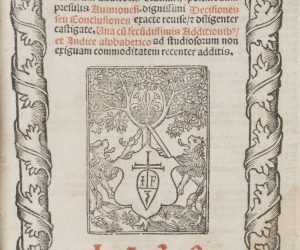 presulis Auinioneñ. dignissimi Decisiones
seu Conclusiones exacte reuise/ et diligenter
castigate. Una cū fecūdissimis Additionibꝰ/
et Indice alphabetico ad studiosorum non
exiguam commoditatem recenter additis.
I F